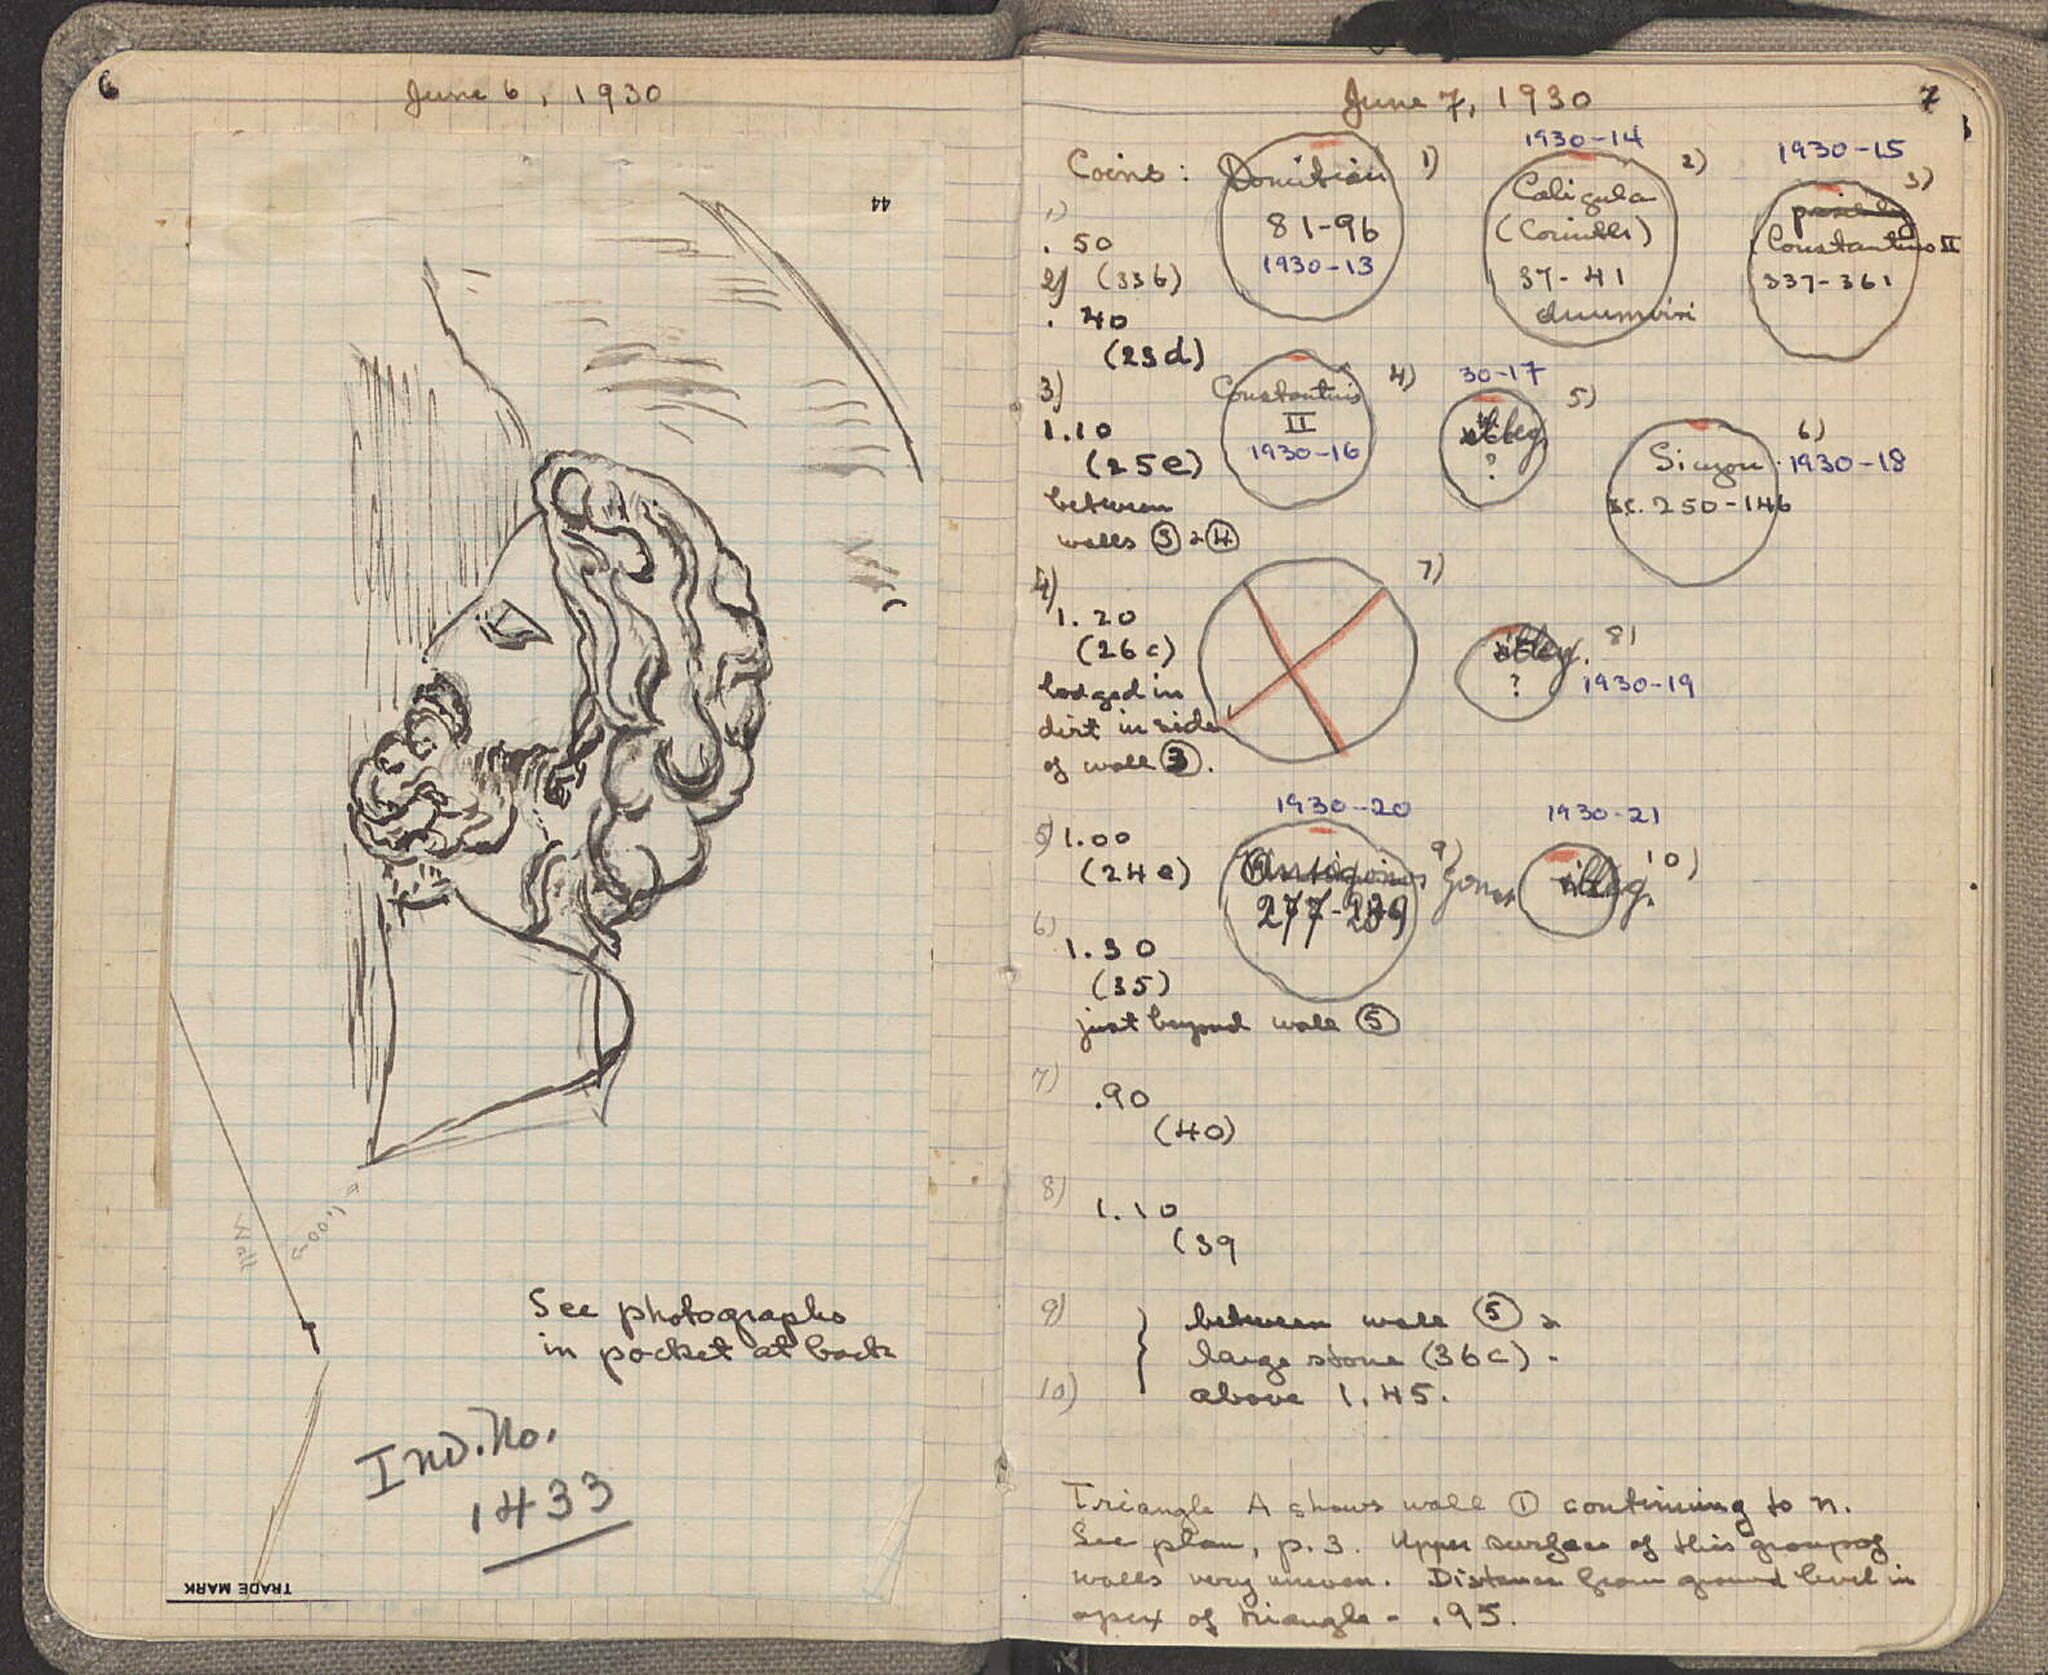 6
June 6, 1930
44
Wall
See photographs
in pocket at back
Inv. No.
1433
TRADE MARK
June 7, 1930
7
Coins:
Domitian
81-96
1930-13
1)
1930-14
Caligula
(Corinth)
37-41
duumviri
2)
1930-15
possibly
Constantius II
337-361
3)
Constantius
II
1930-16
4)
30-17
illeg
?
5)
Sicyon
BC. 250-146
6)
1930-18
7)
illeg.
?
8)
1930-19
1930-20
Antigonus
9)
1930-21
illeg.
10)
1)
.50
(33b)
2)
.40
(23d)
3)
1.10
(25e)
between
walls ③ & ④
4)
1.20
(26c)
lodged in
dirt in side
of wall ③.
5) 1.00
(24e)
6)
1.30
(35)
just beyond wall ⑤
7)
.90
(40)
8)
1.10
(39
9)
10)
between wall ⑤ &
large stone (36c) -
above 1.45.
Triangle A shows wall ① continuing to N.
See plan, p. 3. Upper surface of this group of
walls very uneven. Distance from ground level in
apex of triangle - .95.